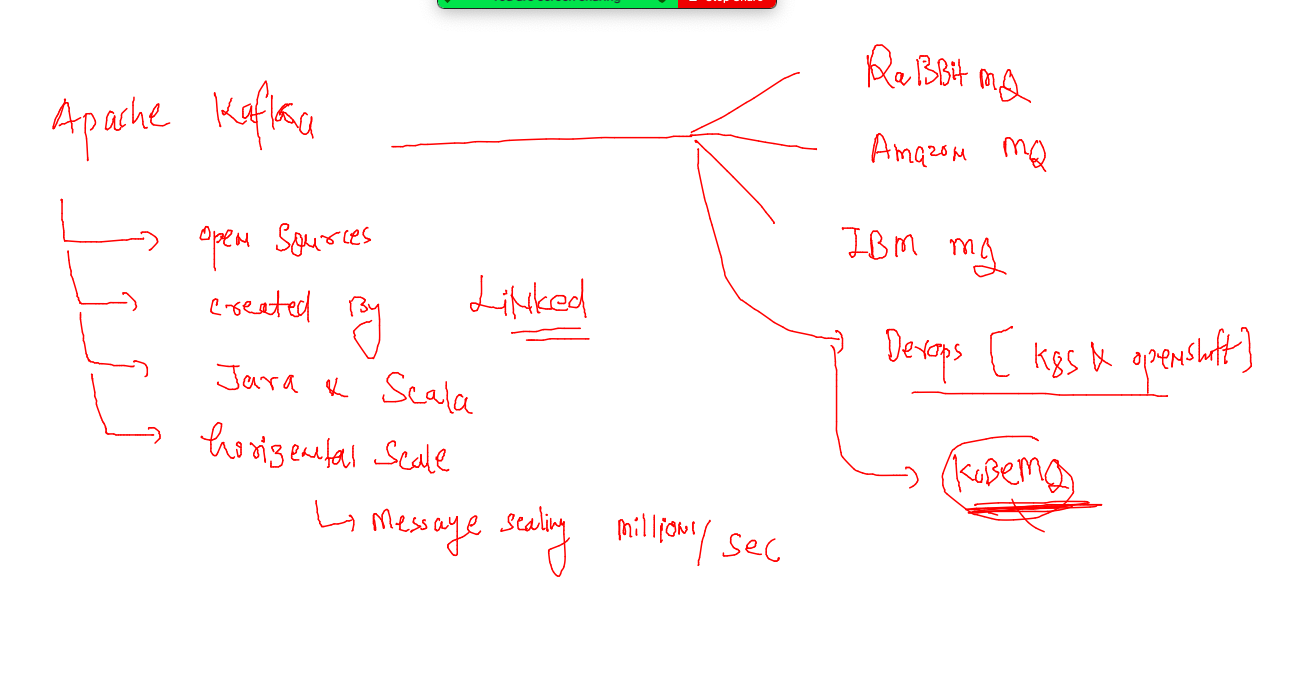 Apache Kafka
open Sources
created By Linked
Java & Scala
horizental Scale
Message scaling millions/sec
RaBBit MQ
Amazon MQ
IBM mq
Devops [K8S & openshift]
KuBeMQ